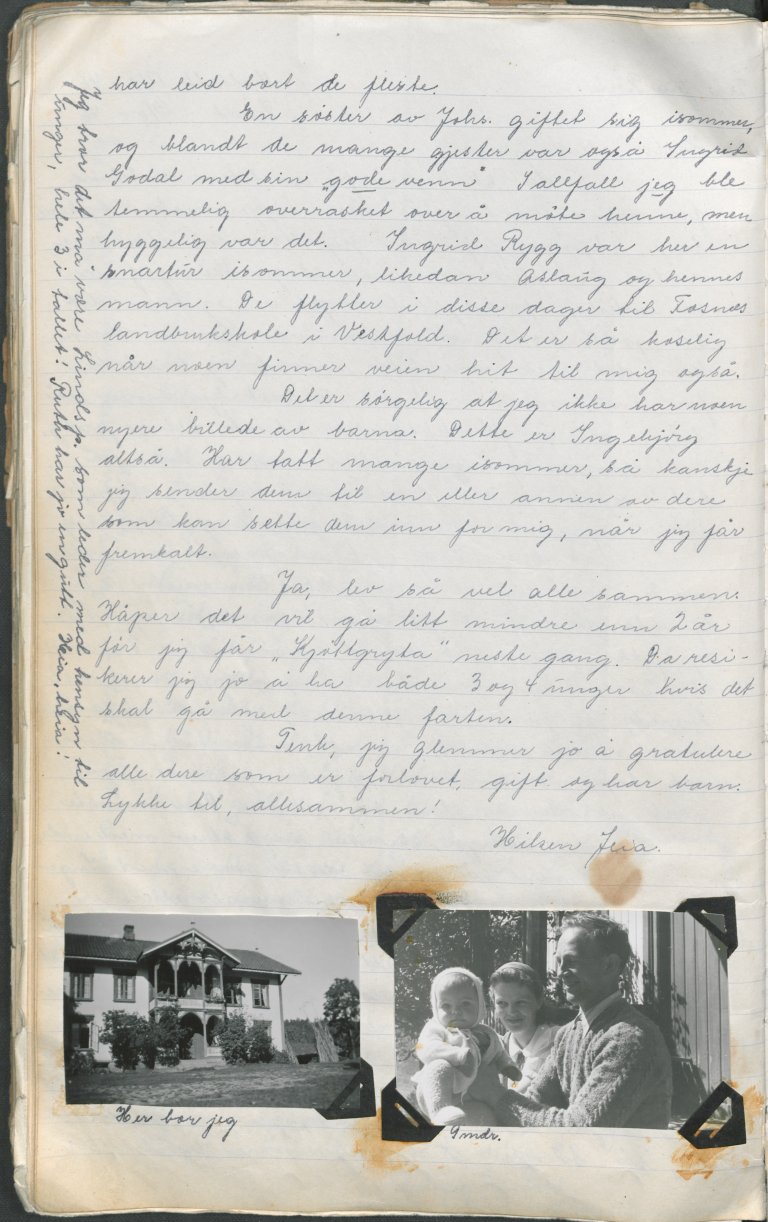 har leid bort de fleste.
En søster av Johs. giftet sig isommer,
og blandt de mange gjester var også Ingrid
Godal med sin „gode venn“ I allfall jeg ble
temmelig overrasket over å møte henne, men
hyggelig var det. Ingrid Rygg var her en
snartur isommer, likedan Aslaug og hennes
mann. De flytter i disse dager til Fosnes
landbrukskole i Vestfold. Det er så koselig
når noen finner veien hit til mig også.
Det er sørgelig at jeg ikke har noen
nyere billede av barna. Dette er Ingebjörg
altså. Har tatt mange isommer, så kanskje
jeg sender dem til en eller annen av dere
som kan sette dem inn for mig, når jeg får
fremkalt.
Ja, lev så vel alle sammen.
Håper det vil gå litt mindre enn 2 år
før jeg får „Kjöttgryta“ neste gang. Da resi-
kerer jeg jo å ha både 3 og 4 unger hvis det
skal gå med denne farten.
Tenk, jeg glemmer jo å gratulere
alle dere som er forlovet, gift og har barn.
Lykke til, allesammen!
Hilsen Jeia.
Jeg tror det må være Lindis, som leder med hensyn til
unger, hele 3 i tallet! Ruth har jo en gutt. Heia, heia!
Her bor jeg
9 mdr.